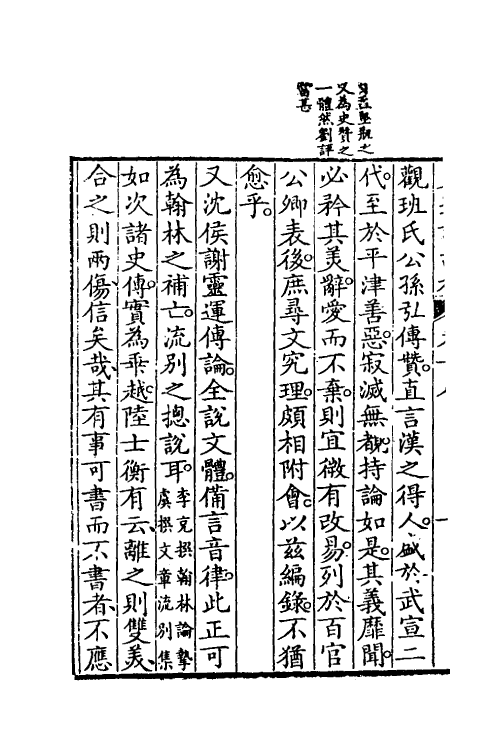 孟堅觀之
又為史贊之
一體然劉評
當甚
觀班氏公孫弘傳贊。直言漢之得人。盛於武宣二
代。至於平津善惡。寂滅無覩。持論如是。其義靡聞。
必矜其美辭。愛而不棄。則宜微有改易。列於百官
公卿表後。庶尋文究理。頗相附會。以兹編錄。不猶
愈乎。
又沈侯謝靈運傳論。全說文體。備言音律。此正可
為翰林之補亡。流別之摠說耳。李充撰翰林論摯
虞撰文章流別集
如次諸史傳。實為乖越。陸士衡有云、離之則雙美、
合之則兩傷、信矣哉、其有事可書而不書者、不應